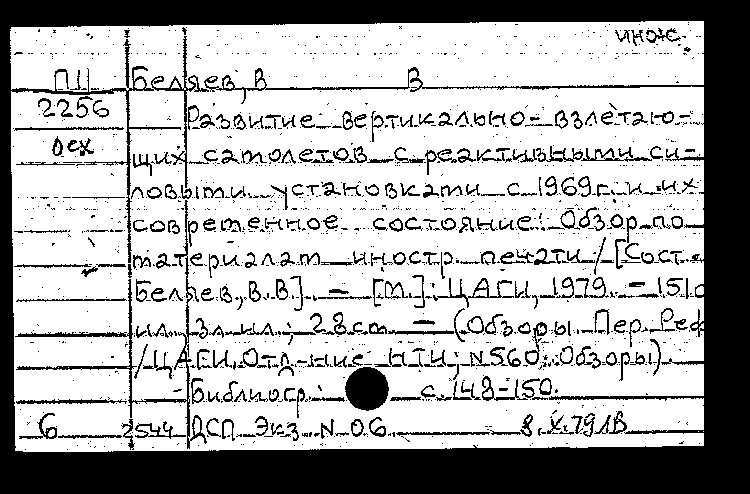 инож.
П11 Беляев, В В
2256 Развитие вертикально-взлетаю-
осх щих самолетов с реактивными си-
ловыми установками с 1969г. и их
современное состояние: Обзор по
материалам иностр. печати / [Сост.
Беляев, В.В.]. - [М.]: ЦАГИ, 1979. - 151с
ил. ил.; 28 см. - (Обзоры. Пер. Реф
/ЦАГИ. Отд-ние НТИ; N560: Обзоры).
- Библиогр.: с. 148-150.
6 2544 ДСП Экз. N 06. 8.X.79